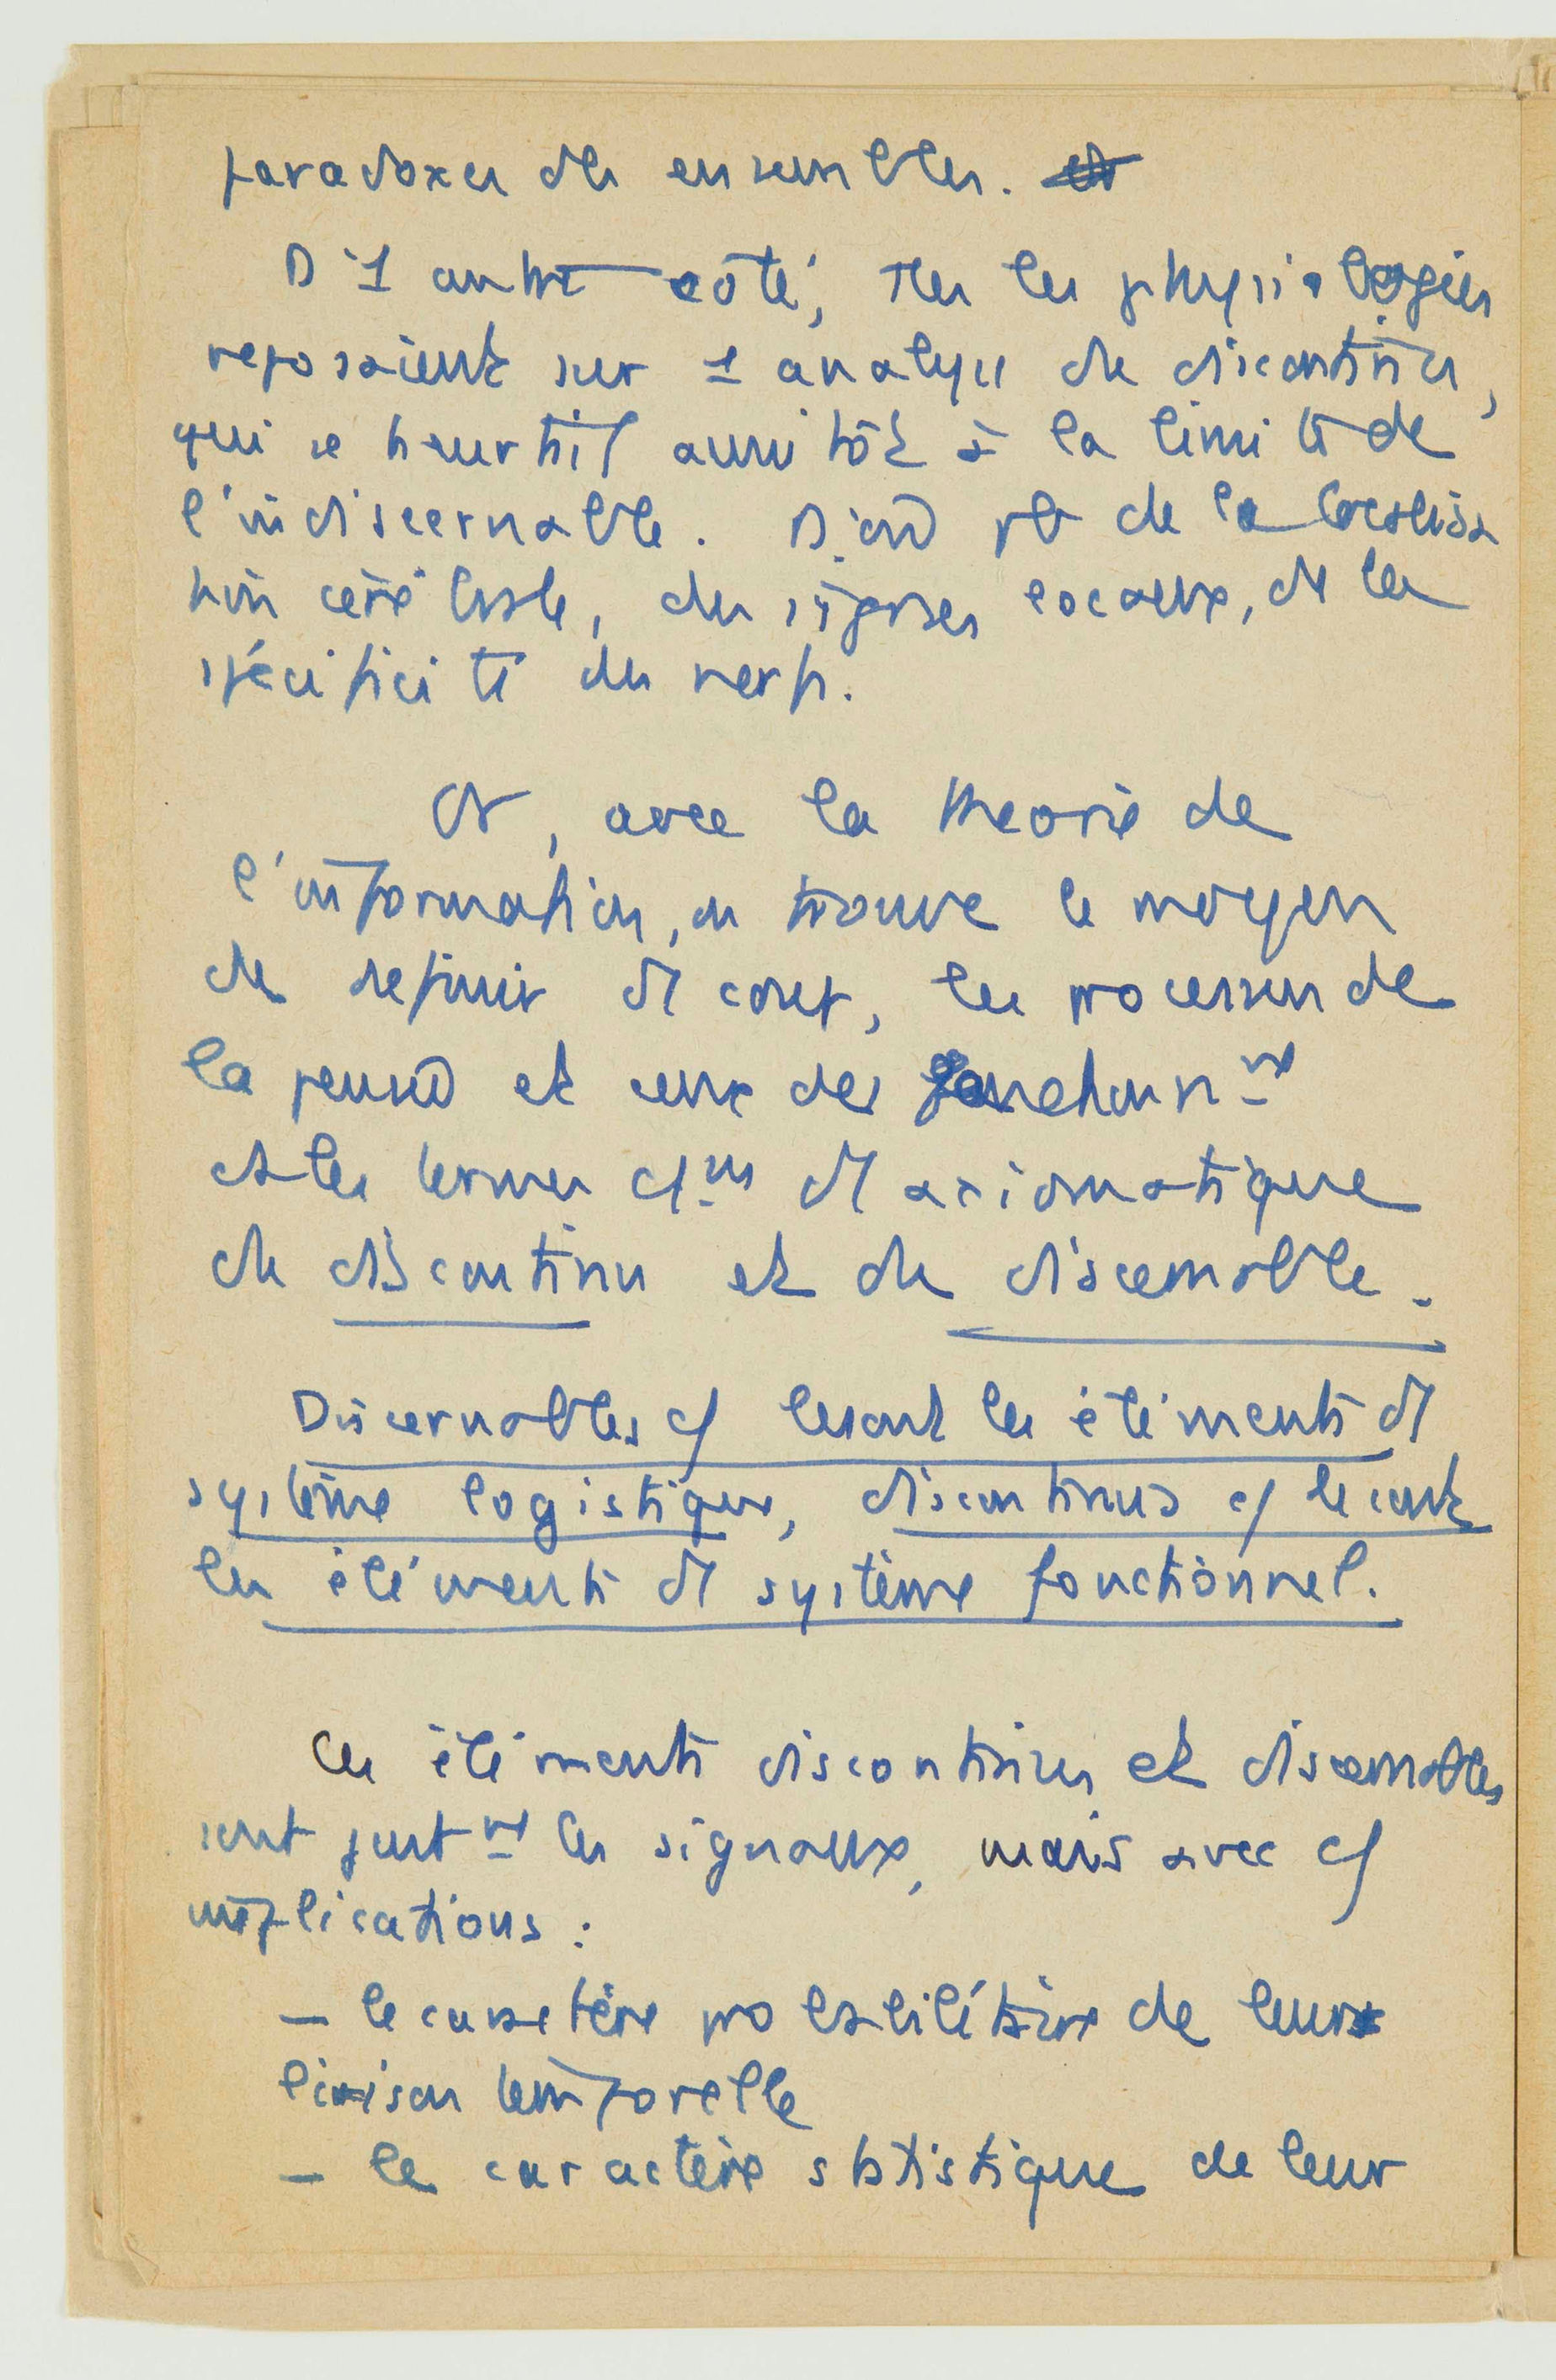 paradoxes des ensembles.
D'1 autre côté, ttes les physiologies
reposaient sur 1 analyse du discontinu,
qui se heurtait aussitôt à la limite de
l'indiscernable. D'où pb de la localisa
tion cérébrale, des signes locaux, de la
spécificité des nerfs.
Or, avec la théorie de
l'information, on trouve le moyen
de définir ds les processus de
la pensée et ceux des
les termes ds axiomatique
du discontinu et du discernable.
Discernables les éléments ds
système logistique, discontinus
les éléments ds système fonctionnel.
Ces éléments discontinus et discernables
sont justmt les signaux, mais avec
implications :
– le caractère probabilitaire de leur
liaison temporelle
– le caractère statistique de leur